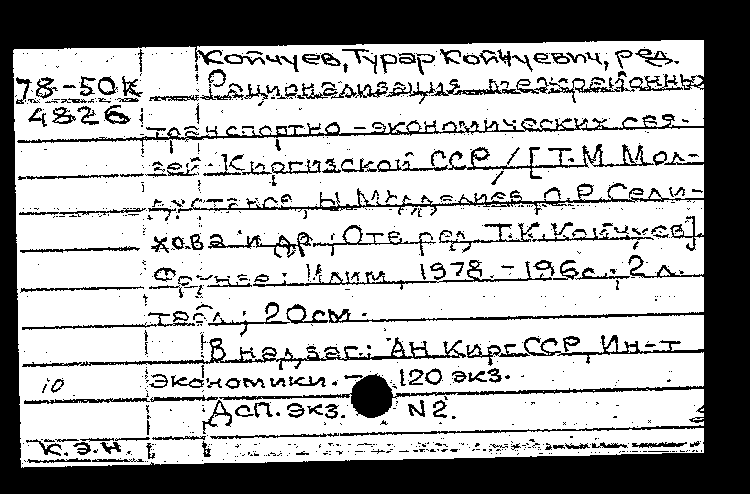 Койчуев, Турар Койчуевич, ред.
78-50к Рационализация межрайонно
4826 транспортно-экономических свя-
зей Киргизской ССР / [Т.М. Мол-
Ы. Мадалиев, О.Р. Сели-
хова и др.; Отв. ред. Т.К. Койчуев].
Фрунзе: Илим, 1978. - 196с.; 2 л.
табл.; 20см.
В надзаг.: АН Кирг.ССР, Ин-т
10 экономики. - 120 экз.
Дсп. экз. N2.
К.Э.Н.